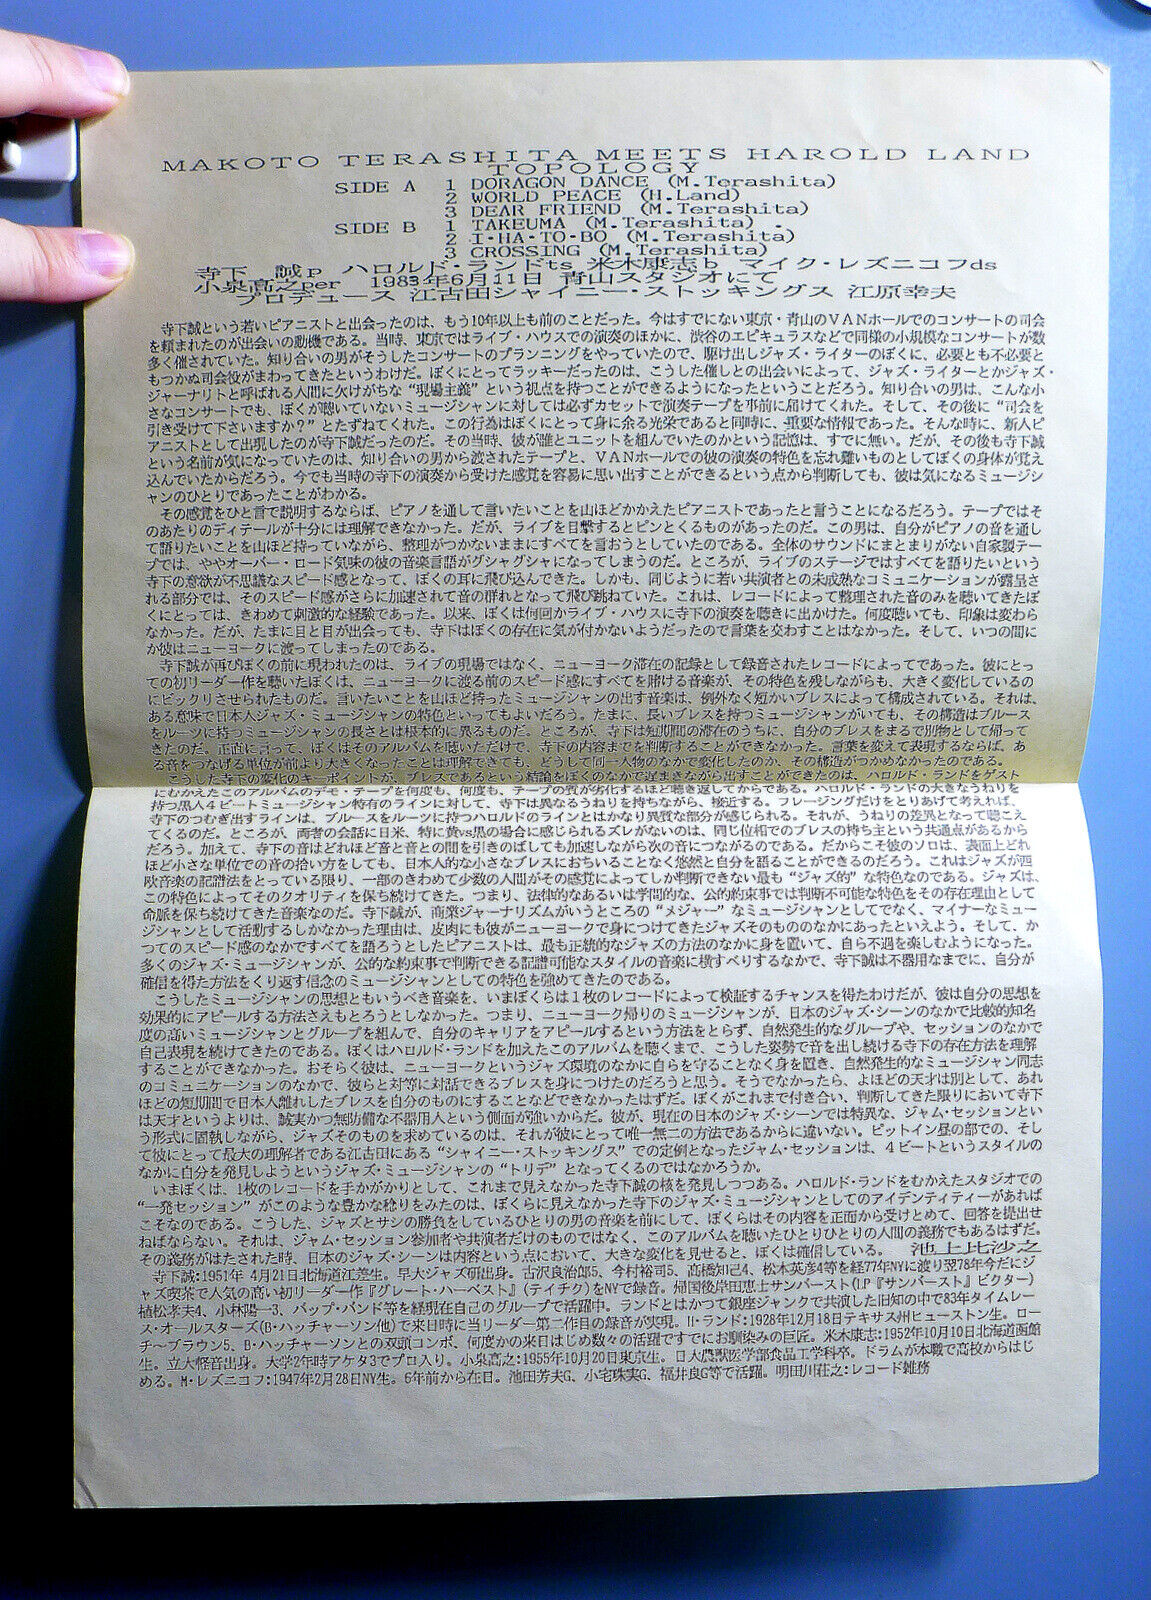 MAKOTO TERASHITA MEETS HAROLD LAND
TOPOLOGY
SIDE A 1 DORAGON DANCE (M.Terashita)
2 WORLD PEACE (H.Land)
3 DEAR FRIEND (M.Terashita)
SIDE B 1 TAKEUMA (M.Terashita)
2 I・HA・TO・BO (M.Terashita)
3 CROSSING (M.Terashita)
寺下 誠p ハロルド・ランドts 米木康志b マイク・レズニコフds
小泉高之per 1983年6月11日 青山スタジオにて
プロデュース 江古田シャイニー・ストッキングス 江原幸夫
寺下誠という若いピアニストと出会ったのは、もう10年以上も前のことだった。今はすでにない東京・青山のVANホールでのコンサートの司会
を頼まれたのが出会いの動機である。当時、東京ではライブ・ハウスでの演奏のほかに、渋谷のエピキュラスなどで同様の小規模なコンサートが数
多く催されていた。知り合いの男がそうしたコンサートのプランニングをやっていたので、駆け出しジャズ・ライターのぼくに、必要とも不必要と
もつかぬ司会役がまわってきたというわけだ。ぼくにとってラッキーだったのは、こうした催しとの出会いによって、ジャズ・ライターとかジャズ・
ジャーナリトと呼ばれる人間に欠けがちな“現場主義”という視点を持つことができるようになったということだろう。知り合いの男は、こんな小
さなコンサートでも、ぼくが聴いていないミュージシャンに対しては必ずカセットで演奏テープを事前に届けてくれた。そして、その後に“司会を
引き受けて下さいますか?”とたずねてくれた。この行為はぼくにとって身に余る光栄であると同時に、重要な情報であった。そんな時に、新人ピ
アニストとして出現したのが寺下誠だったのだ。その当時、彼が誰とユニットを組んでいたのかという記憶は、すでに無い。だが、その後も寺下誠
という名前が気になっていたのは、知り合いの男から渡されたテープと、VANホールでの彼の演奏の特色を忘れ難いものとしてぼくの身体が覚え
込んでいたからだろう。今でも当時の寺下の演奏から受けた感覚を容易に思い出すことができるという点から判断しても、彼は気になるミュージシ
ャンのひとりであったことがわかる。
その感覚をひと言で説明するならば、ピアノを通して言いたいことを山ほどかかえたピアニストであったと言うことになるだろう。テープではそ
のあたりのディテールが十分には理解できなかった。だが、ライブを目撃するとピンとくるものがあったのだ。この男は、自分がピアノの音を通し
て語りたいことを山ほど持っていながら、整理がつかないままにすべてを言おうとしていたのである。全体のサウンドにまとまりがない自家製テー
プでは、ややオーバー・ロード気味の彼の音楽言語がグシャグシャになってしまうのだ。ところが、ライブのステージではすべてを語りたいという
寺下の意欲が不思議なスピード感となって、ぼくの耳に飛び込んできた。しかも、同じように若い共演者との未成熟なコミュニケーションが露呈さ
れる部分では、そのスピード感がさらに加速されて音の群れとなって飛び跳ねていた。これは、レコードによって整理された音のみを聴いてきたぼ
くにとっては、きわめて刺激的な経験であった。以来、ぼくは何回かライブ・ハウスに寺下の演奏を聴きに出かけた。何度聴いても、印象は変わら
なかった。だが、たまに目と目が出会っても、寺下はぼくの存在に気が付かないようだったので言葉を交わすことはなかった。そして、いつの間に
か彼はニューヨークに渡ってしまったのである。
寺下誠が再びぼくの前に現われたのは、ライブの現場ではなく、ニューヨーク滞在の記録として録音されたレコードによってであった。彼にとっ
ての初リーダー作を聴いたぼくは、ニューヨークに渡る前のスピード感にすべてを賭ける音楽が、その特色を残しながらも、大きく変化しているの
にビックリさせられたものだ。言いたいことを山ほど持ったミュージシャンの出す音楽は、例外なく短かいブレスによって構成されている。それは、
ある意味で日本人ジャズ・ミュージシャンの特色といってもよいだろう。たまに、長いブレスを持つミュージシャンがいても、その構造はブルース
をルーツに持つミュージシャンの長さとは根本的に異るものだ。ところが、寺下は短期間の滞在のうちに、自分のブレスをまるで別物として帰って
きたのだ。正直に言って、ぼくはそのアルバムを聴いただけで、寺下の内容までを判断することができなかった。言葉を変えて表現するならば、あ
る音をつなげる単位が前より大きくなったことは理解できても、どうして同一人物のなかで変化したのか、その構造がつかめなかったのである。
こうした寺下の変化のキーポイントが、ブレスであるという結論をぼくのなかで遅まきながら出すことができたのは、ハロルド・ランドをゲスト
にむかえたこのアルバムのデモ・テープを何度も、何度も、テープの質が劣化するほど聴き返してからである。ハロルド・ランドの大きなうねりを
持つ黒人4ビートミュージシャン特有のラインに対して、寺下は異なるうねりを持ちながら、接近する。フレージングだけをとりあげて考えれば、
寺下のつむぎ出すラインは、ブルースをルーツに持つハロルドのラインとはかなり異質な部分が感じられる。それが、うねりの差異となって聴こえ
てくるのだ。ところが、両者の会話に日米、特に黄vs黒の場合に感じられるズレがないのは、同じ位相でのブレスの持ち主という共通点があるから
だろう。加えて、寺下の音はどれほど音と音との間を引きのばしても加速しながら次の音につながるのである。だからこそ彼のソロは、表面上どれ
ほど小さな単位での音の拾い方をしても、日本人的な小さなブレスにおちいることなく悠然と自分を語ることができるのだろう。これはジャズが西
欧音楽の記譜法をとっている限り、一部のきわめて少数の人間がその感覚によってしか判断できない最も“ジャズ的”な特色なのである。ジャズは、
この特色によってそのクオリティを保ち続けてきた。つまり、法律的なあるいは学問的な、公的約束事では判断不可能な特色をその存在理由として
命脈を保ち続けてきた音楽なのだ。寺下誠が、商業ジャーナリズムがいうところの“メジャー”なミュージシャンとしてでなく、マイナーなミュー
ジシャンとして活動するしかなかった理由は、皮肉にも彼がニューヨークで身につけてきたジャズそのもののなかにあったといえよう。そして、か
つてのスピード感のなかですべてを語ろうとしたピアニストは、最も正統的なジャズの方法のなかに身を置いて、自ら不遇を楽しむようになった。
多くのジャズ・ミュージシャンが、公的な約束事で判断できる記譜可能なスタイルの音楽に横すべりするなかで、寺下誠は不器用なまでに、自分が
確信を得た方法をくり返す信念のミュージシャンとしての特色を強めてきたのである。
こうしたミュージシャンの思想ともいうべき音楽を、いまぼくらは1枚のレコードによって検証するチャンスを得たわけだが、彼は自分の思想を
効果的にアピールする方法さえもとろうとしなかった。つまり、ニューヨーク帰りのミュージシャンが、日本のジャズ・シーンのなかで比較的知名
度の高いミュージシャンとグループを組んで、自分のキャリアをアピールするという方法をとらず、自然発生的なグループや、セッションのなかで
自己表現を続けてきたのである。ぼくはハロルド・ランドを加えたこのアルバムを聴くまで、こうした姿勢で音を出し続ける寺下の存在方法を理解
することができなかった。おそらく彼は、ニューヨークというジャズ環境のなかに自らを守ることなく身を置き、自然発生的なミュージシャン同志
のコミュニケーションのなかで、彼らと対等に対話できるブレスを身につけたのだろうと思う。そうでなかったら、よほどの天才は別として、あれ
ほどの短期間で日本人離れしたブレスを自分のものにすることなどできなかったはずだ。ぼくがこれまで付き合い、判断してきた限りにおいて寺下
は天才というよりは、誠実かつ無防備な不器用人という側面が強いからだ。彼が、現在の日本のジャズ・シーンでは特異な、ジャム・セッションとい
う形式に固執しながら、ジャズそのものを求めているのは、それが彼にとって唯一無二の方法であるからに違いない。ピットイン昼の部での、そし
て彼にとって最大の理解者である江古田にある“シャイニー・ストッキングス”での定例となったジャム・セッションは、4ビートというスタイルの
なかに自分を発見しようというジャズ・ミュージシャンの“トリデ”となってくるのではなかろうか。
いまぼくは、1枚のレコードを手がかりとして、これまで見えなかった寺下誠の核を発見しつつある。ハロルド・ランドをむかえたスタジオでの
“一発セッション”がこのような豊かな稔りをみたのは、ぼくらに見えなかった寺下のジャズ・ミュージシャンとしてのアイデンティティーがあれば
こそなのである。こうした、ジャズとサシの勝負をしているひとりの男の音楽を前にして、ぼくらはその内容を正面から受けとめて、回答を提出せ
ねばならない。それは、ジャム・セッション参加者や共演者だけのものではなく、このアルバムを聴いたひとりひとりの人間の義務でもあるはずだ。
その義務がはたされた時、日本のジャズ・シーンは内容という点において、大きな変化を見せると、ぼくは確信している。 池上比沙之
寺下誠:1951年 4月21日北海道江差生。早大ジャズ研出身。古沢良治郎5、今村裕司5、高橋知己4、松本英彦4等を経77年NYに渡り翌78年今だにジ
ャズ喫茶で人気の高い初リーダー作『グレート・ハーベスト』(テイチク)をNYで録音。帰国後岸田恵士サンバースト(LP『サンバースト』ビクター)
植松孝夫4、小林陽一3、バップ・バンド等を経現在自己のグループで活躍中。ランドとはかつて銀座ジャンクで共演した旧知の中で83年タイムレー
ス・オールスターズ(B・ハッチャーソン他)で来日時に当リーダー第二作目の録音が実現。H・ランド:1928年12月18日テキサス州ヒューストン生。ロー
チ〜ブラウン5、B・ハッチャーソンとの双頭コンボ、何度かの来日はじめ数々の活躍ですでにお馴染みの巨匠。米木康志:1952年10月10日北海道函館
生。立大軽音出身。大学2年時アケタ3でプロ入り。小泉高之:1955年10月20日東京生。日大農獣医学部食品工学科卒。ドラムが本職で高校からはじ
める。M・レズニコフ:1947年2月28日NY生。6年前から在日。池田芳夫G、小宅珠実G、福井良G等で活躍。明田川荘之:レコード雑務